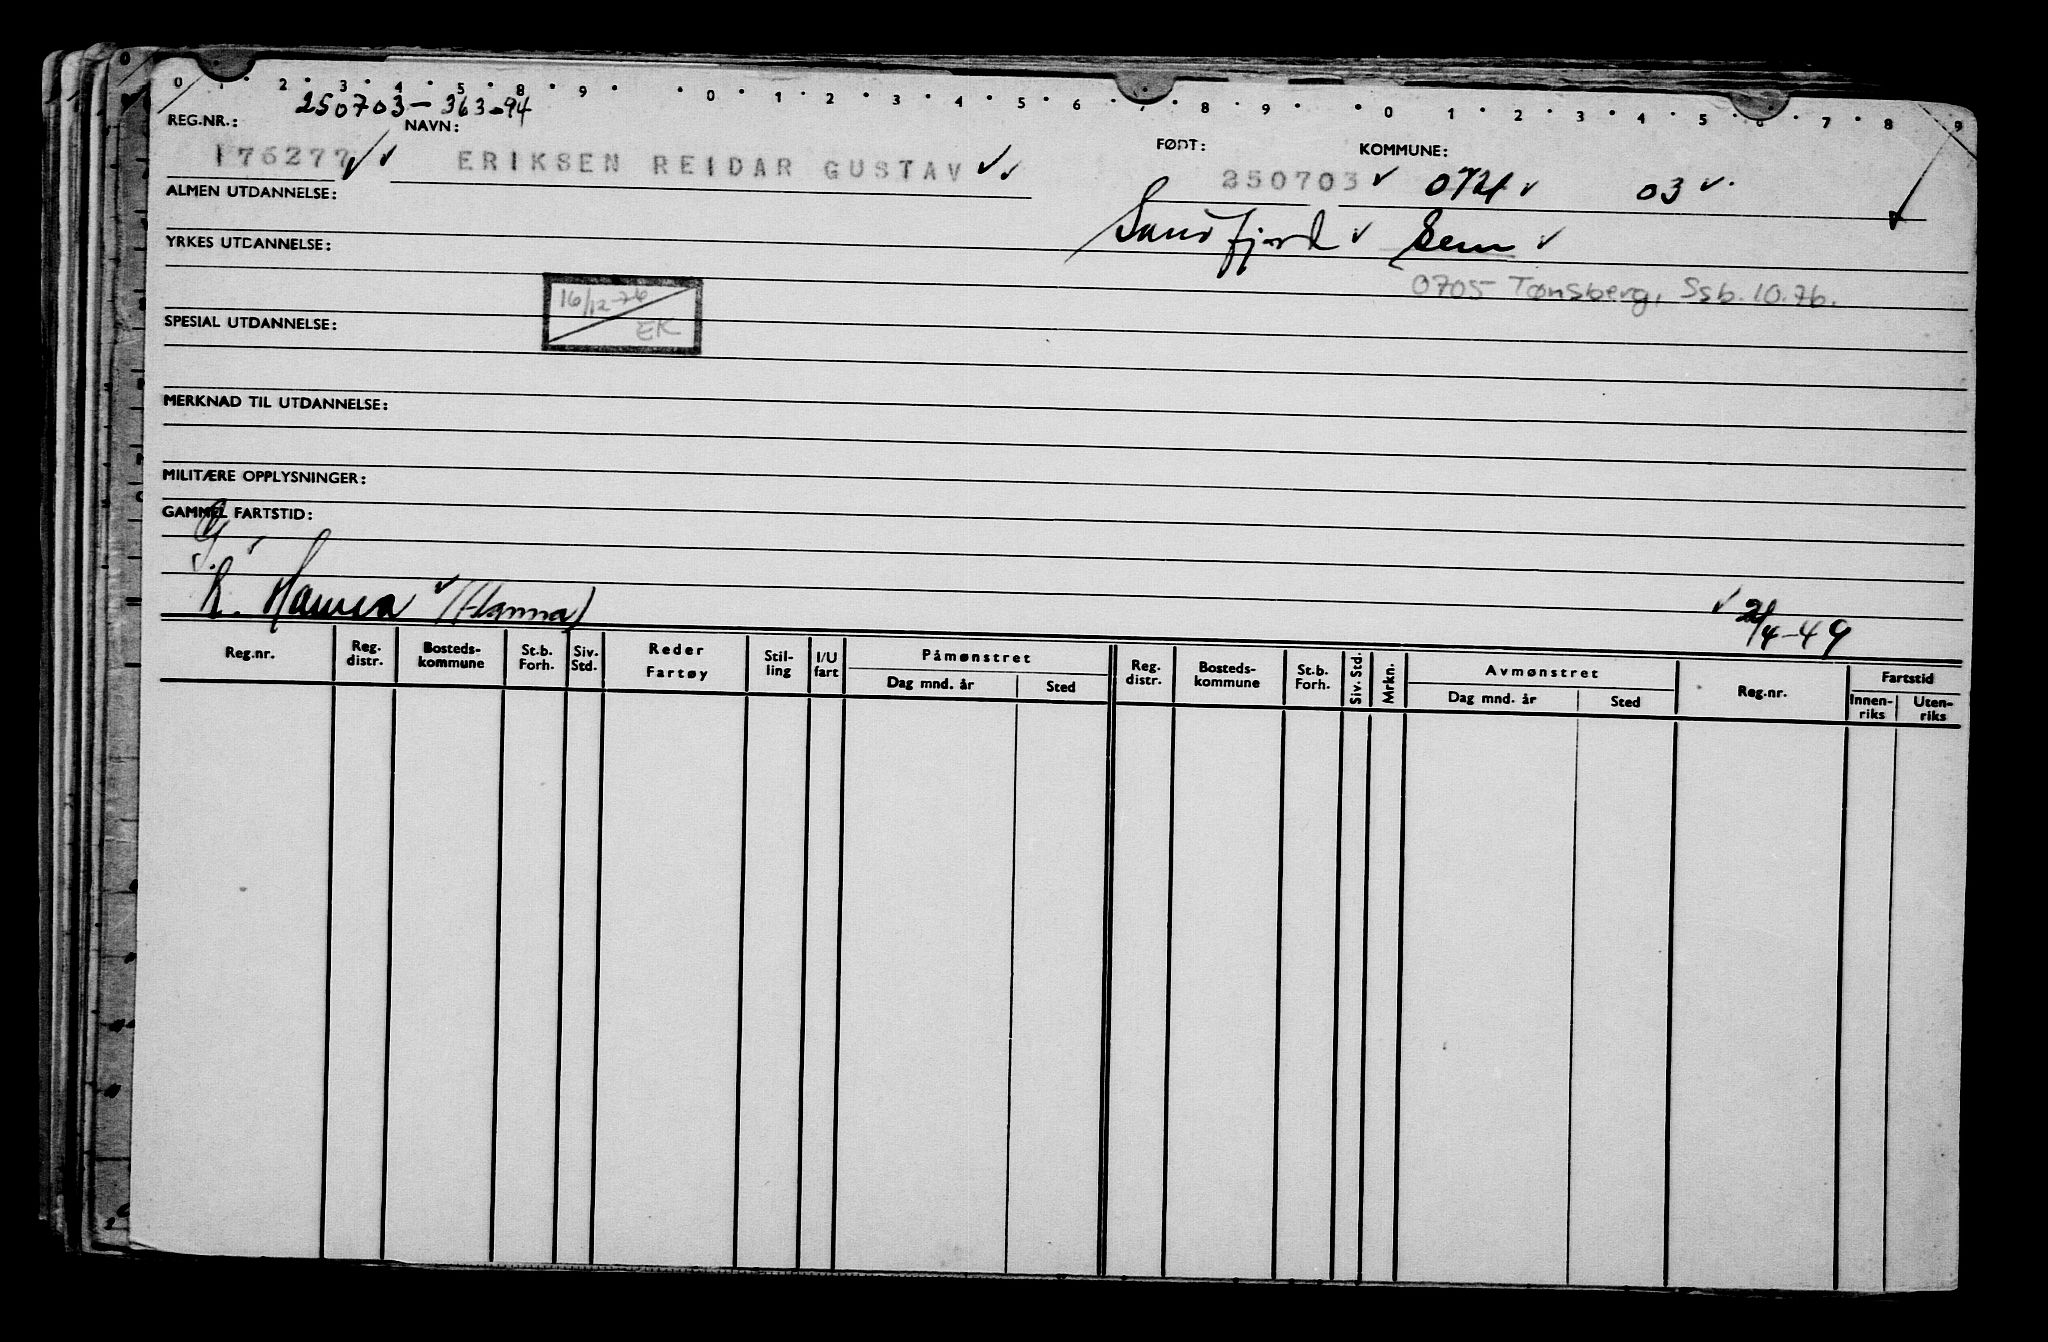 0 1 2 3 4 5 8 9 0 1 2 3 4 5 6 7 8 9 0 1 2 3 4 5 6 7 8 9
250703-363-94
REG.NR.: NAVN: FØDT: KOMMUNE:
176277 ERIKSEN REIDAR GUSTAV 250703 0721 03
ALMEN UTDANNELSE: Sandefjord Sem
YRKES UTDANNELSE:
0705 Tønsberg, Ssb. 10.76.
16/12-76
EK
SPESIAL UTDANNELSE:
MERKNAD TIL UTDANNELSE:
MILITÆRE OPPLYSNINGER:
GAMMEL FARTSTID:
G.
K. Hanna (Hanna) /4-49
Reg.nr. Reg. distr. Bosteds-kommune St.b. Forh. Siv. Std. Reder Fartøy Stil-ling I/U fart Påmønstret Reg. distr. Bosteds-kommune St.b. Forh. Siv. Std. Mrkn. Avmønstret Reg.nr. Fartstid
Dag mnd. år Sted Dag mnd. år Sted Innen-riks Uten-riks